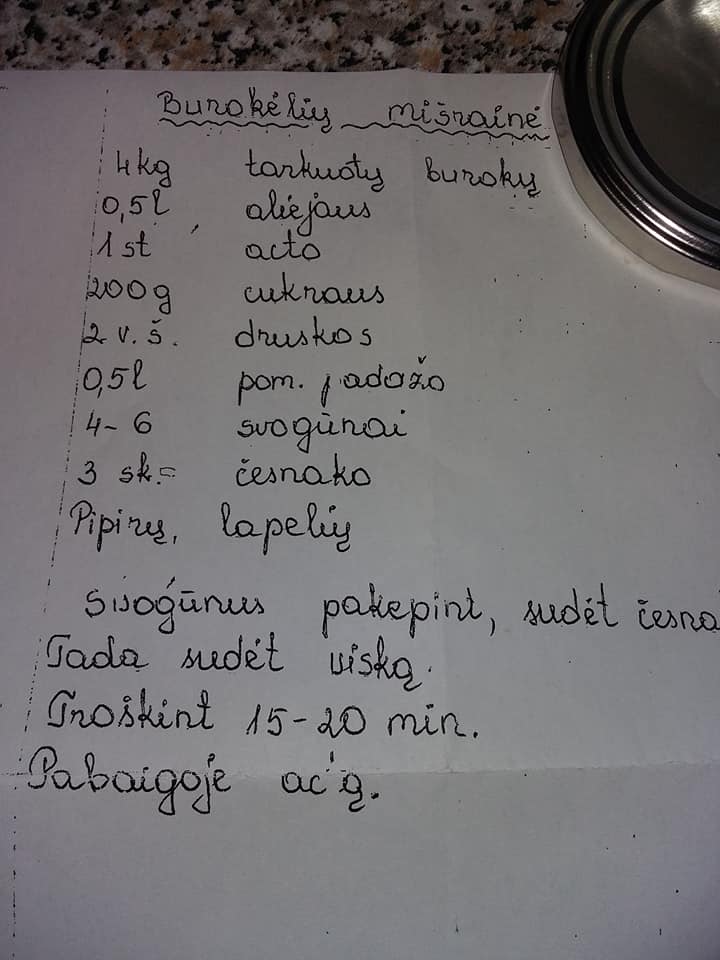 Burokėlių mišrainė
4kg tarkuotų burokų
0,5l aliejaus
1 st acto
200g cukraus
2 v.š. druskos
0,5l pom. padažo
4-6 svogūnai
3 sk. česnako
Pipirų, lapelių
Svogūnus pakepint, sudėt česna
Tada sudėt viską.
Troškint 15-20 min.
Pabaigoje actą.